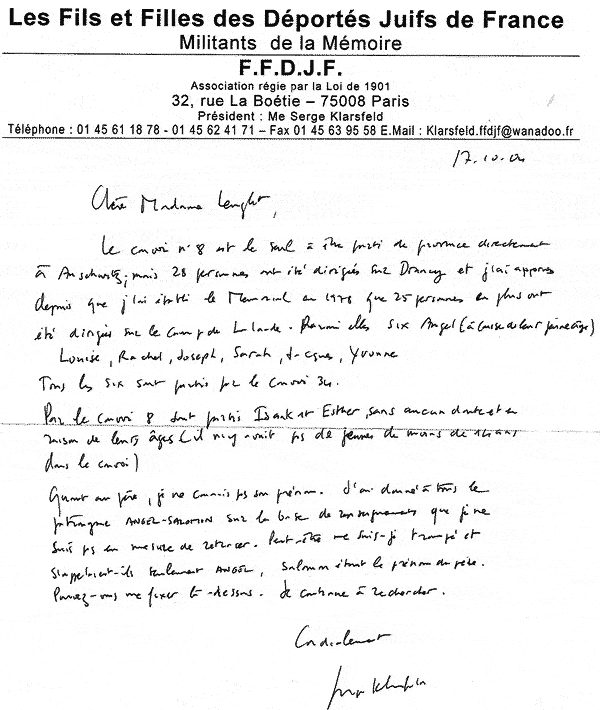 Les Fils et Filles des Déportés Juifs de France
Militants de la Mémoire
F.F.D.J.F.
Association régie par la Loi de 1901
32, rue La Boétie – 75008 Paris
Président : Me Serge Klarsfeld
Téléphone : 01 45 61 18 78 - 01 45 62 41 71 – Fax 01 45 63 95 58 E.Mail : Klarsfeld.ffdjf@wanadoo.fr
17.10.04
Chère Madame
Le convoi n° 8 est le seul à être parti de province directement
à Auschwitz ; mais 28 personnes ont été dirigées sur Drancy et j'ai appris
depuis que j'ai établi le Mémorial en 1978 que 25 personnes en plus ont
été dirigées sur le camp de La Lande. Parmi elles six Angel (à cause de leur jeune âge)
Louise, Rachel, Joseph, Sarah, Jacques, Yvonne
Tous les six sont partis par le convoi 34.
Par le convoi 8 sont partis Isaak et Esther, sans aucun doute et en
raison de leurs âges (il n'y avait pas de jeunes de moins de ans
dans le convoi)
Quant au père, je ne connais pas son prénom. J'ai donné à tous le
patronyme ANGEL-SALOMON sur la base de renseignements que je ne
suis pas en mesure de retracer. Peut-être me suis-je trompé et
s'appelaient-ils seulement ANGEL, Salomon étant le prénom du père.
Pouvez-vous me fixer là-dessus. Je continue à rechercher.
Cordialement